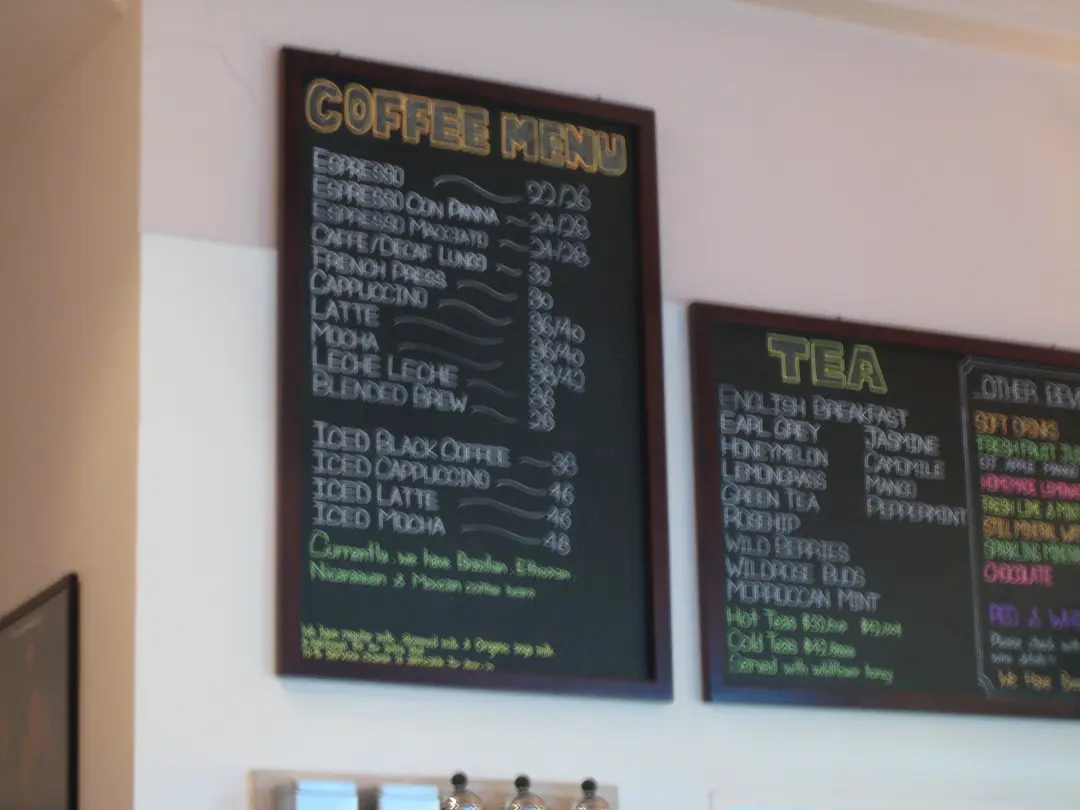 COFFEE MENU
ESPRESSO 22/26
ESPRESSO CON PANNA 24/28
ESPRESSO MACCIATO 24/28
CAFFE/DECAF LUNGO 32
FRENCH PRESS 30
CAPPUCCINO 36/40
LATTE 36/40
MOCHA 38/40
LECHE LECHE 36
BLENDED BREW 28
ICED BLACK COFFEE 38
ICED CAPPUCCINO 46
ICED LATTE 46
ICED MOCHA 48
Currently, we have Brazilian, Ethiopian,
Nicaraguan & Mexican coffee beans
TEA
ENGLISH BREAKFAST
EARL GREY
HONEYMELON
LEMONGRASS
GREEN TEA
ROSEHIP
WILD BERRIES
WILDROSE BUDS
MORROCCAN MINT
JASMINE
CAMOMILE
MANGO
PEPPERMINT
Hot Teas
Cold Teas
Served with wildflower honey
OTHER BEV
SOFT DRINKS
FRESH FRUIT JUI
HOMEMADE LEMON
FRESH LIME & MINT
STILL MINERAL WAT
SPARKLING MINERA
CHOCOLATE
RED & WHI
Please check wit
We Have